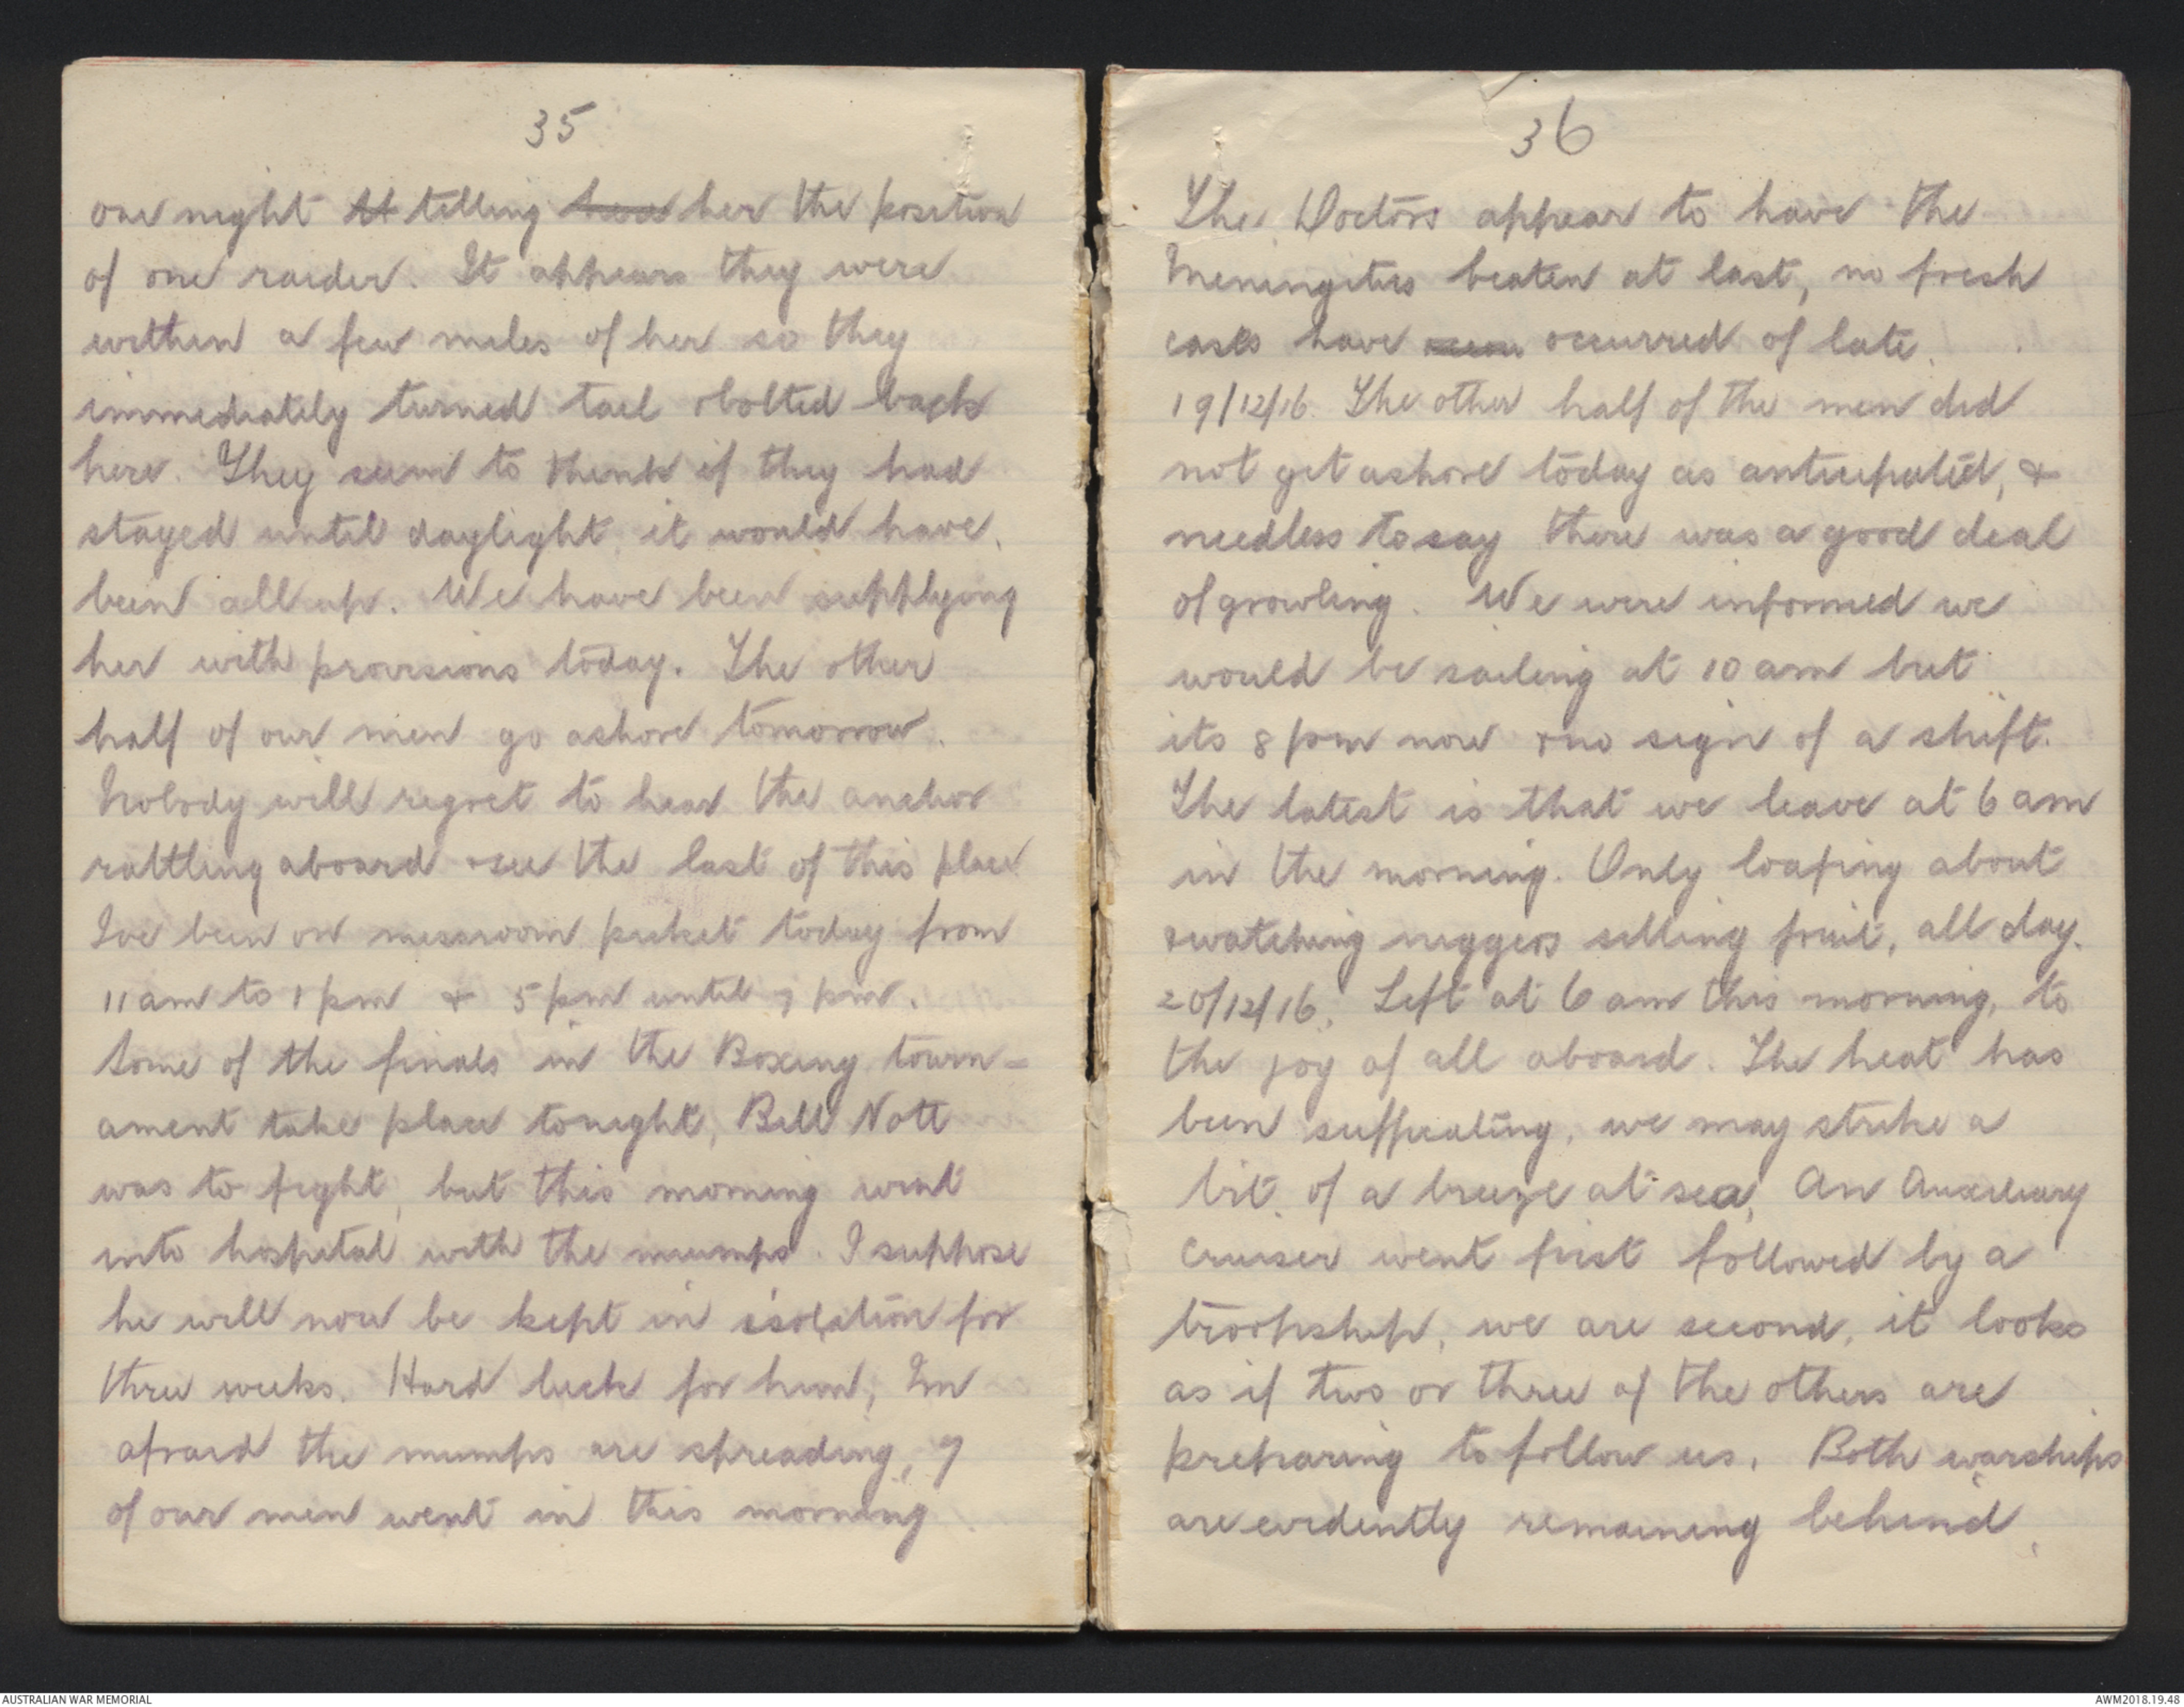 35
one night telling her the position
of one raider. It appears they were
within a few miles of her so they
immediately turned tail & bolted back
here. They seem to think if they had
stayed until daylight, it would have
been all up. We have been supplying
her with provisions today. The other
half of our men go ashore tomorrow.
Nobody will regret to hear the anchor
rattling aboard & see the last of this place
Ive been on messroom picket today from
11 am to 1 pm & 5 pm until 7 pm.
Some of the finals in the Boxing tourn-
ament take place tonight, Bill Nott
was to fight, but this morning went
into hospital with the mumps. I suppose
he will now be kept in isolation for
three weeks. Hard luck for him, Im
afraid the mumps are spreading, 9
of our men went in this morning
36
The Doctors appear to have the
Meningitis beaten at last, no fresh
cases have occurred of late.
19/12/16. The other half of the men did
not get ashore today as anticipated, &
needless to say there was a good deal
of growling. We were informed we
would be sailing at 10 am but
its 8 pm now & no sign of a shift.
The latest is that we leave at 6 am
in the morning. Only loafing about
& watching niggers selling fruit, all day.
20/12/16. Left at 6 am this morning, to
the joy of all aboard. The heat has
been suffocating, we may strike a
bit of a breeze at sea, An Auxiliary
Cruiser went first followed by a
troopship, we are second, it looks
as if two or three of the others are
preparing to follow us. Both warships
are evidently remaining behind.
AUSTRALIAN WAR MEMORIAL
AWM2018.19.48